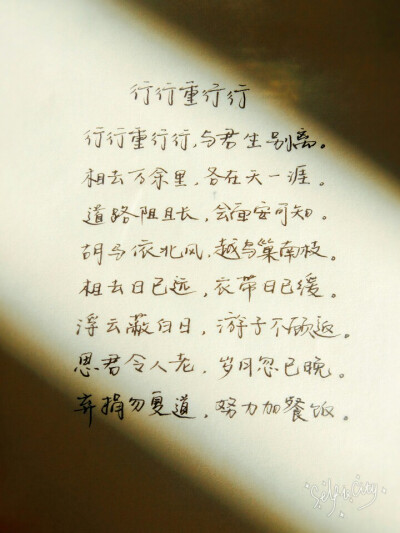 行行重行行
行行重行行,与君生别离。
相去万余里,各在天一涯。
道路阻且长,会面安可知。
胡马依北风,越鸟巢南枝。
相去日已远,衣带日已缓。
浮云蔽白日,游子不顾返。
思君令人老,岁月忽已晚。
弃捐勿复道,努力加餐饭。